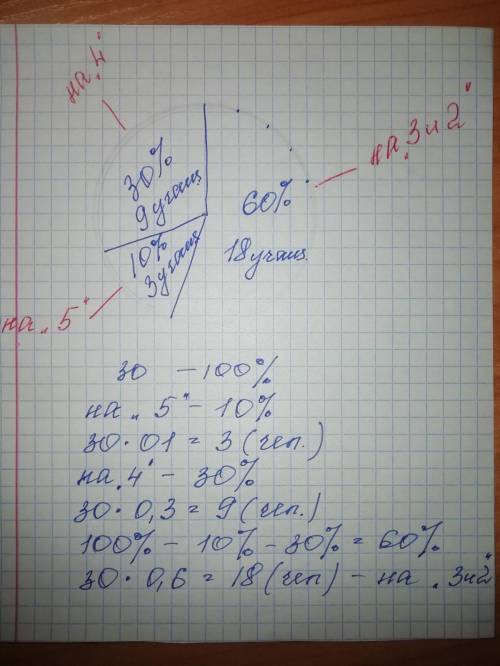 на „4"
30%
9 учащ
60%
18 учащ.
на „3 и 2"
10%
3 учащ
на „5"
30 – 100%
на „5" – 10%
30 · 01 = 3 (чел.)
на „4" – 30%
30 · 0,3 = 9 (чел.)
100% – 10% – 30% = 60%
30 · 0,6 = 18 (чел) – на „3 и 2"